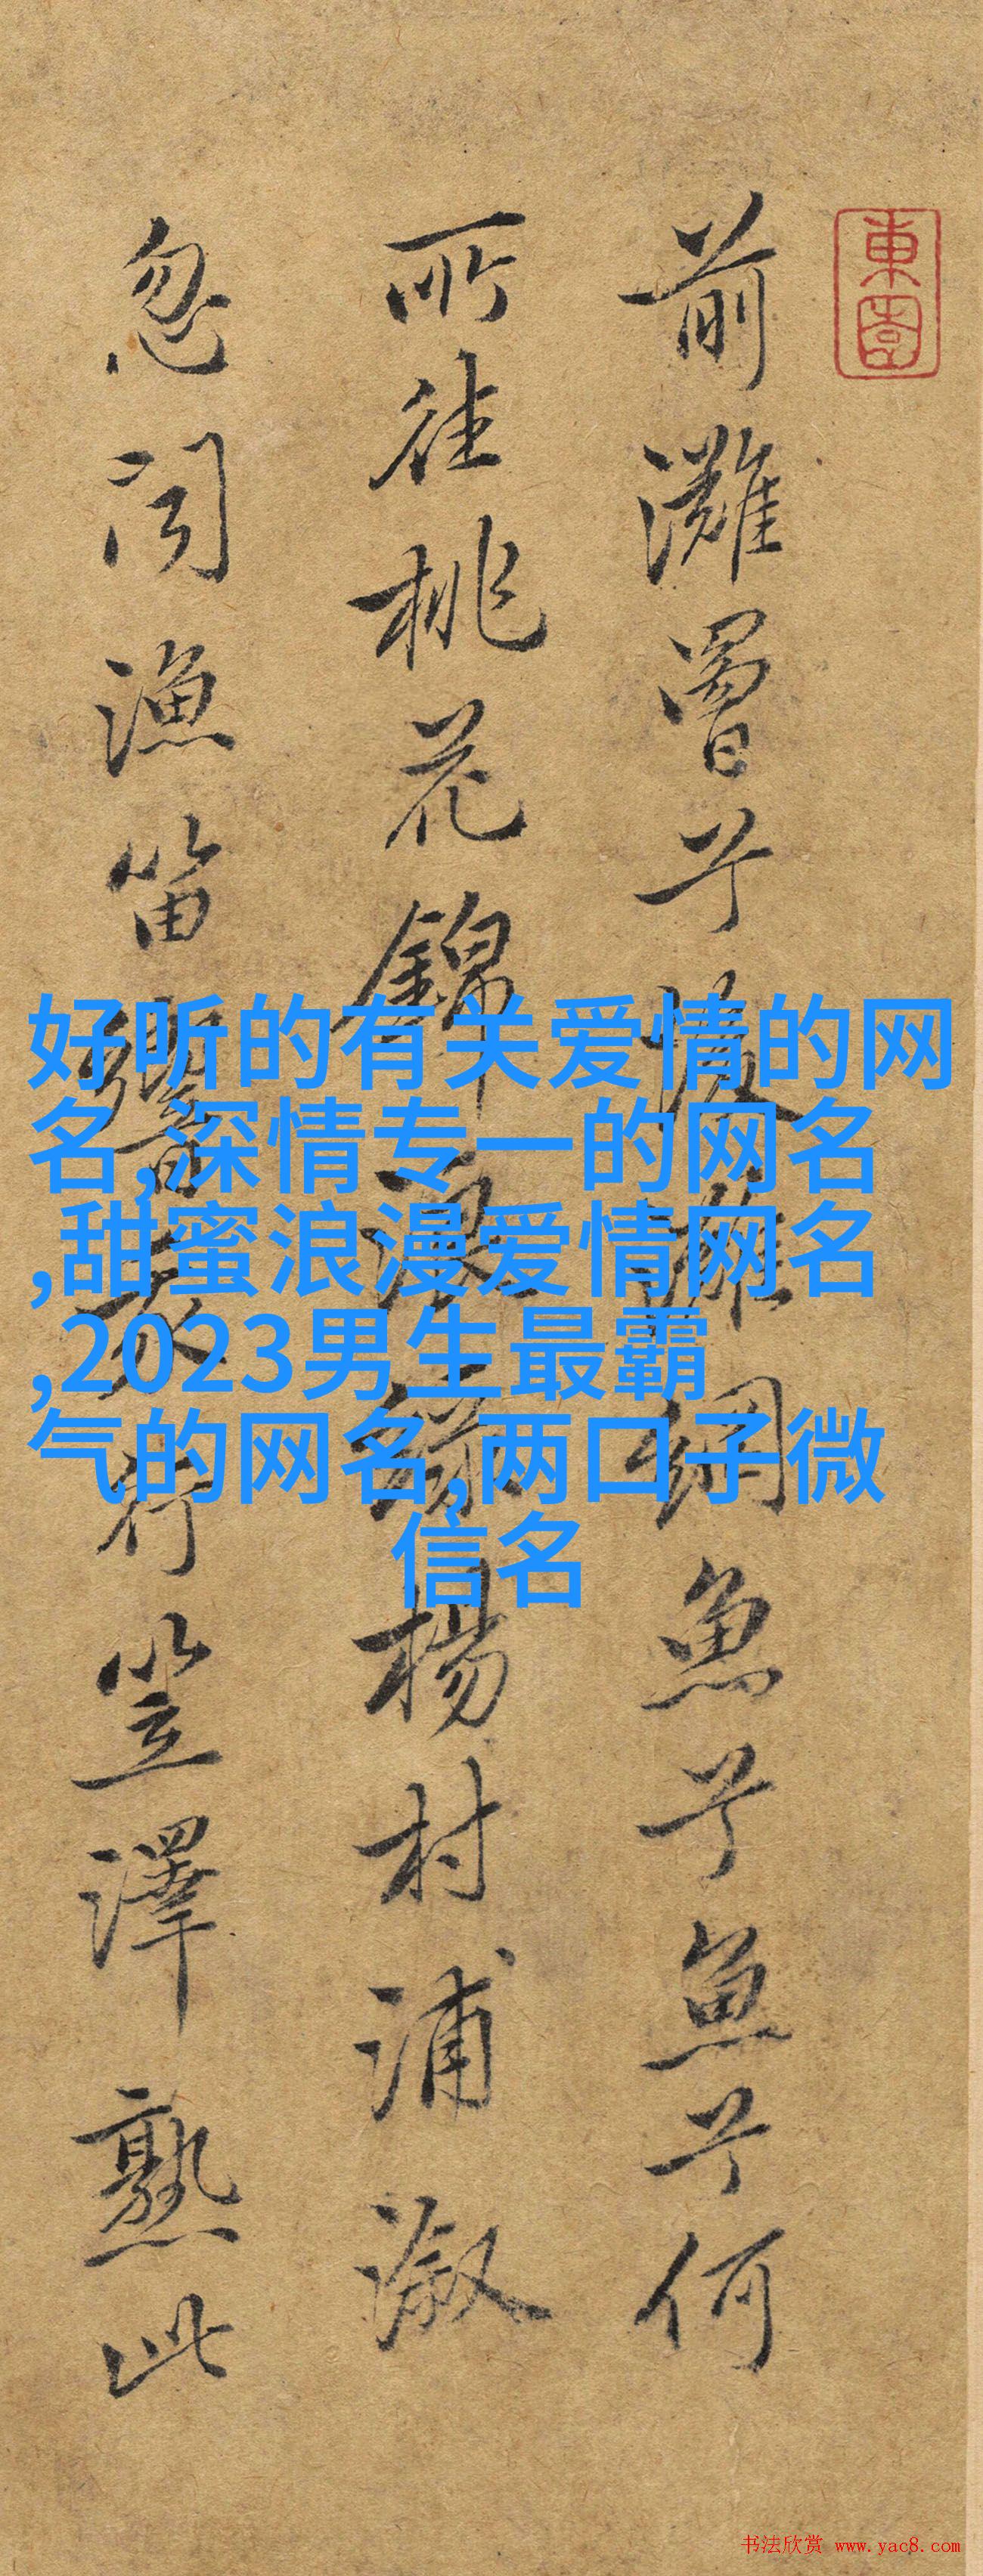 東園
前灘罾兮後灘網魚兮魚兮何
所往桃花錦浪綠楊村浦漵
忽聞漁笛響我行笠澤熟此
好听的有关爱情的网
名,深情专一的网名
,甜蜜浪漫爱情网名
,2023男生最霸
气的网名,两口子微
信名
书法欣赏 www.yac8.com